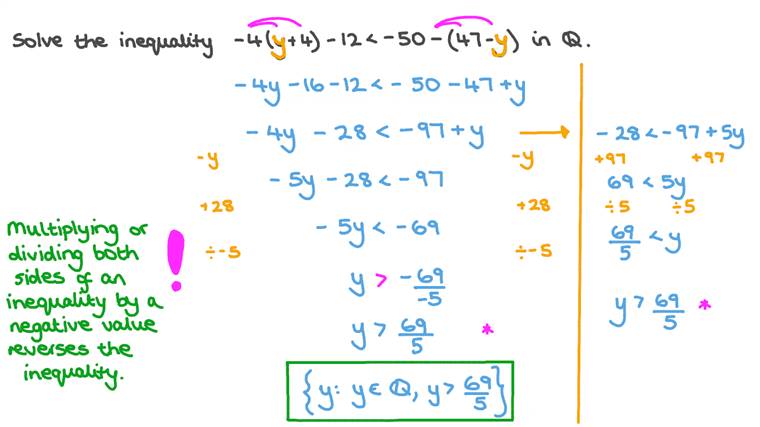 Solve the inequality -4(y+4) - 12 < -50 - (47 - y) in ℚ.
-4y - 16 - 12 < - 50 - 47 + y
-4y - 28 < -97 + y
-y -y
- 5y - 28 < - 97
+28 +28
- 5y < - 69
÷-5 ÷-5
y > -69/-5
y > 69/5 *
{y: y ∈ ℚ, y > 69/5}
Multiplying or
dividing both
sides of an
inequality by a
negative value
reverses the
inequality.
!
- 28 < -97 + 5y
+97 +97
69 < 5y
÷5 ÷5
69/5 < y
y > 69/5 *